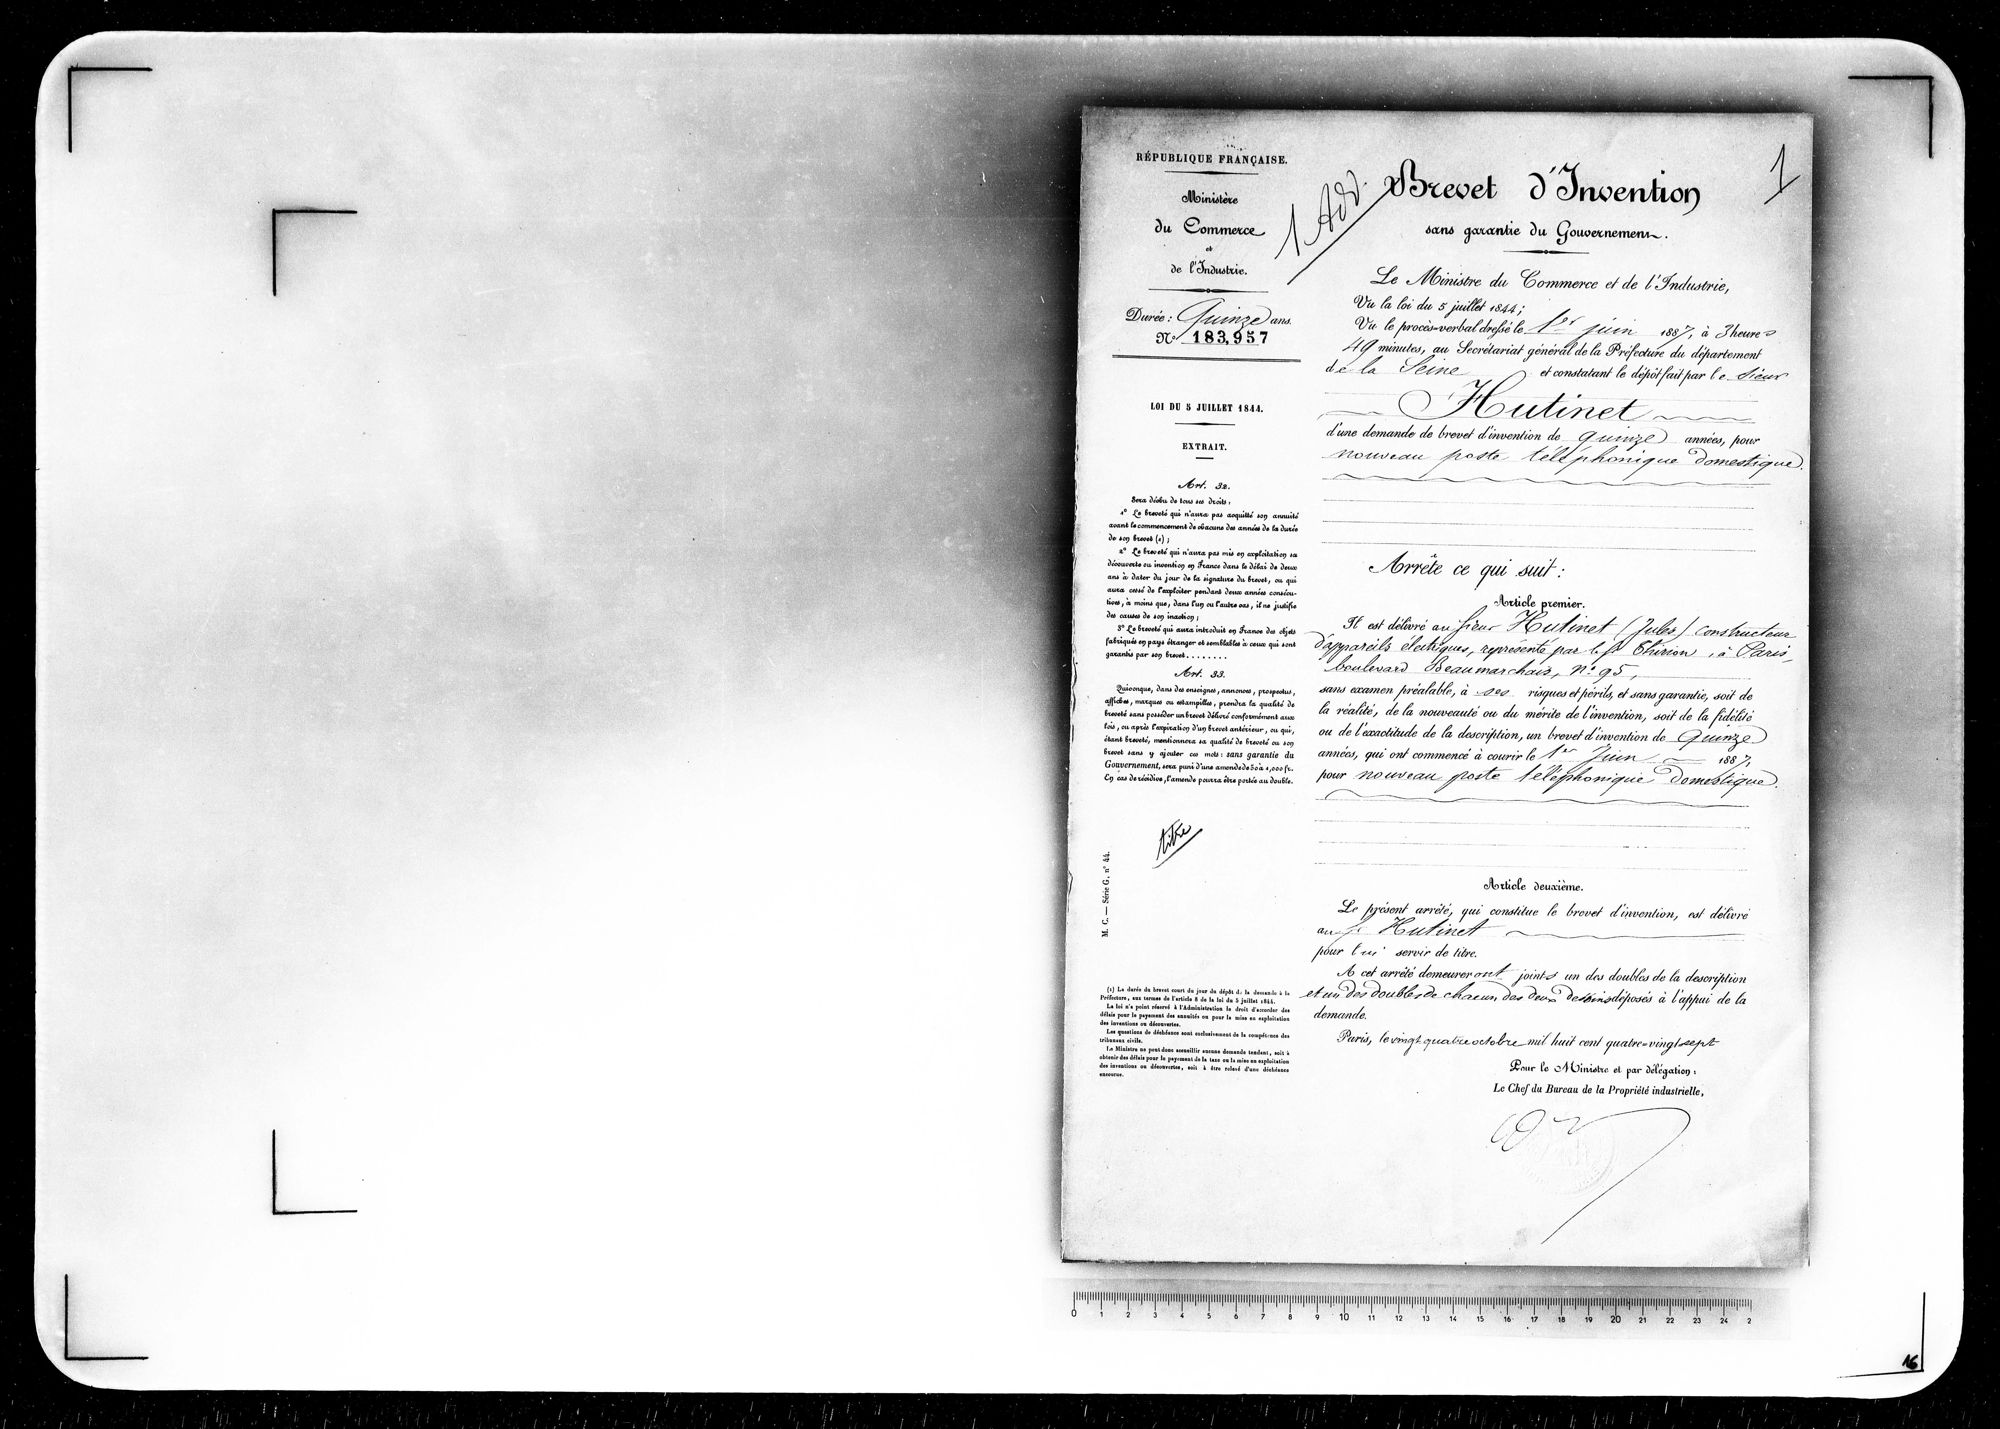 RÉPUBLIQUE FRANÇAISE.
Ministère
du Commerce
et
de l'Industrie.
Durée : Quinze ans.
N° 183,957
LOI DU 5 JUILLET 1844.
EXTRAIT.
Art. 32.
Sera déchu de tous ses droits :
1° Le breveté qui n'aura pas acquitté son annuité
avant le commencement de chacune des années de la durée
de son brevet (1) ;
2° Le breveté qui n'aura pas mis en exploitation sa
découverte ou invention en France dans le délai de deux
ans à dater du jour de la signature du brevet, ou qui
aura cessé de l'exploiter pendant deux années consécu-
tives, à moins que, dans l'un ou l'autre cas, il ne justifie
des causes de son inaction ;
3° Le breveté qui aura introduit en France des objets
fabriqués en pays étranger et semblables à ceux qui sont
garantis par son brevet........
Art. 33.
Quiconque, dans des enseignes, annonces, prospectus,
affiches, marques ou estampilles, prendra la qualité de
breveté sans posséder un brevet délivré conformément aux
lois, ou après l'expiration d'un brevet antérieur, ou qui,
étant breveté, mentionnera sa qualité de breveté ou son
brevet sans y ajouter ces mots : sans garantie du
Gouvernement, sera puni d'une amende de 50 à 1,000 fr.
En cas de récidive, l'amende pourra être portée au double.
titre
M. C. — Série G, n° 44.
(1) La durée du brevet court du jour du dépôt de la demande à la
Préfecture, aux termes de l'article 8 de la loi du 5 juillet 1844.
La loi n'a point réservé à l'Administration le droit d'accorder des
délais pour le payement des annuités ou pour la mise en exploitation
des inventions ou découvertes.
Les questions de déchéance sont exclusivement de la compétence des
tribunaux civils.
Le Ministre ne peut donc accueillir aucune demande tendant, soit à
obtenir des délais pour le payement de la taxe ou la mise en exploitation
des inventions ou découvertes, soit à être relevé d'une déchéance
encourue.
1 Add.
1
Brevet d'Invention
sans garantie du Gouvernement.
Le Ministre du Commerce et de l'Industrie,
Vu la loi du 5 juillet 1844 ;
Vu le procès-verbal dressé le 1er juin 1887, à 3 heures
49 minutes, au Secrétariat général de la Préfecture du département
de la Seine et constatant le dépôt fait par le sieur
Hutinet
d'une demande de brevet d'invention de quinze années, pour
nouveau poste téléphonique domestique.
Arrête ce qui suit :
Article premier.
Il est délivré au sieur Hutinet (Jules) constructeur
d'appareils électriques, représenté par le sr Thirion, à Paris,
boulevard Beaumarchais, n° 95,
sans examen préalable, à ses risques et périls, et sans garantie, soit de
la réalité, de la nouveauté ou du mérite de l'invention, soit de la fidélité
ou de l'exactitude de la description, un brevet d'invention de quinze
années, qui ont commencé à courir le 1er Juin 1887,
pour nouveau poste téléphonique domestique.
Article deuxième.
Le présent arrêté, qui constitue le brevet d'invention, est délivré
au sr Hutinet
pour lui servir de titre.
A cet arrêté demeureront joints un des doubles de la description
et un des doubles de chacun des deux dessins déposés à l'appui de la
demande.
Paris, le vingt quatre octobre mil huit cent quatre-vingt sept
Pour le Ministre et par délégation :
Le Chef du Bureau de la Propriété industrielle,
0 1 2 3 4 5 6 7 8 9 10 11 12 13 14 15 16 17 18 19 20 21 22 23 24 2
16